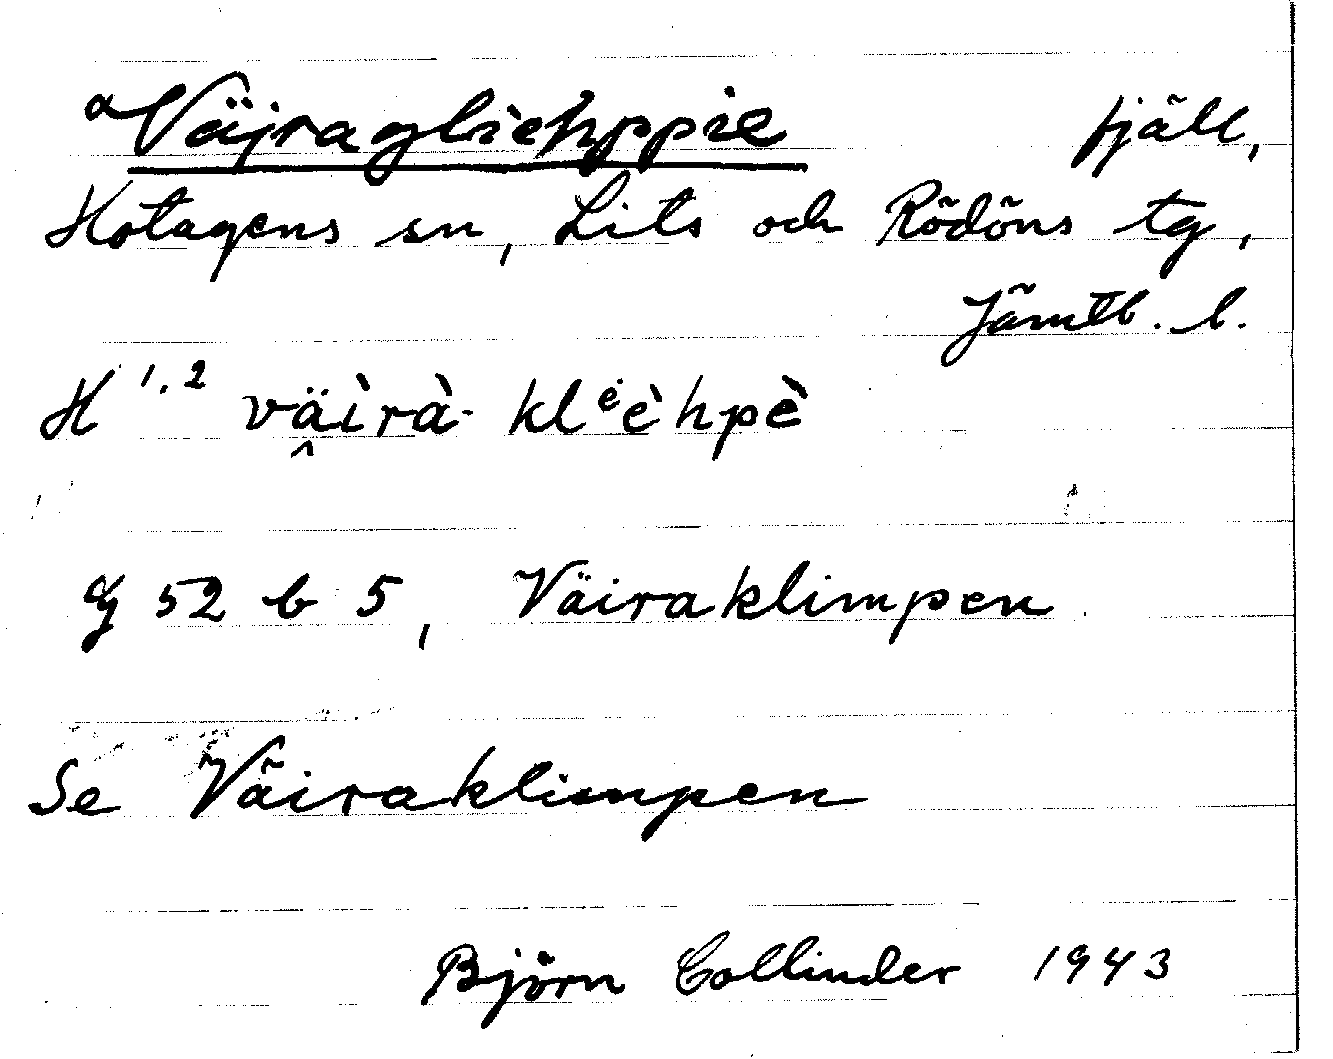 Väjragliehppie fjäll,
Hotagens sn, Lits och Rödöns tg,
Jämtl. l.
H 1,2 vä̭ìrà- klᵉèhpè
G 52 b 5, Väiraklimpen
Se Väiraklimpen
Björn Collinder 1943